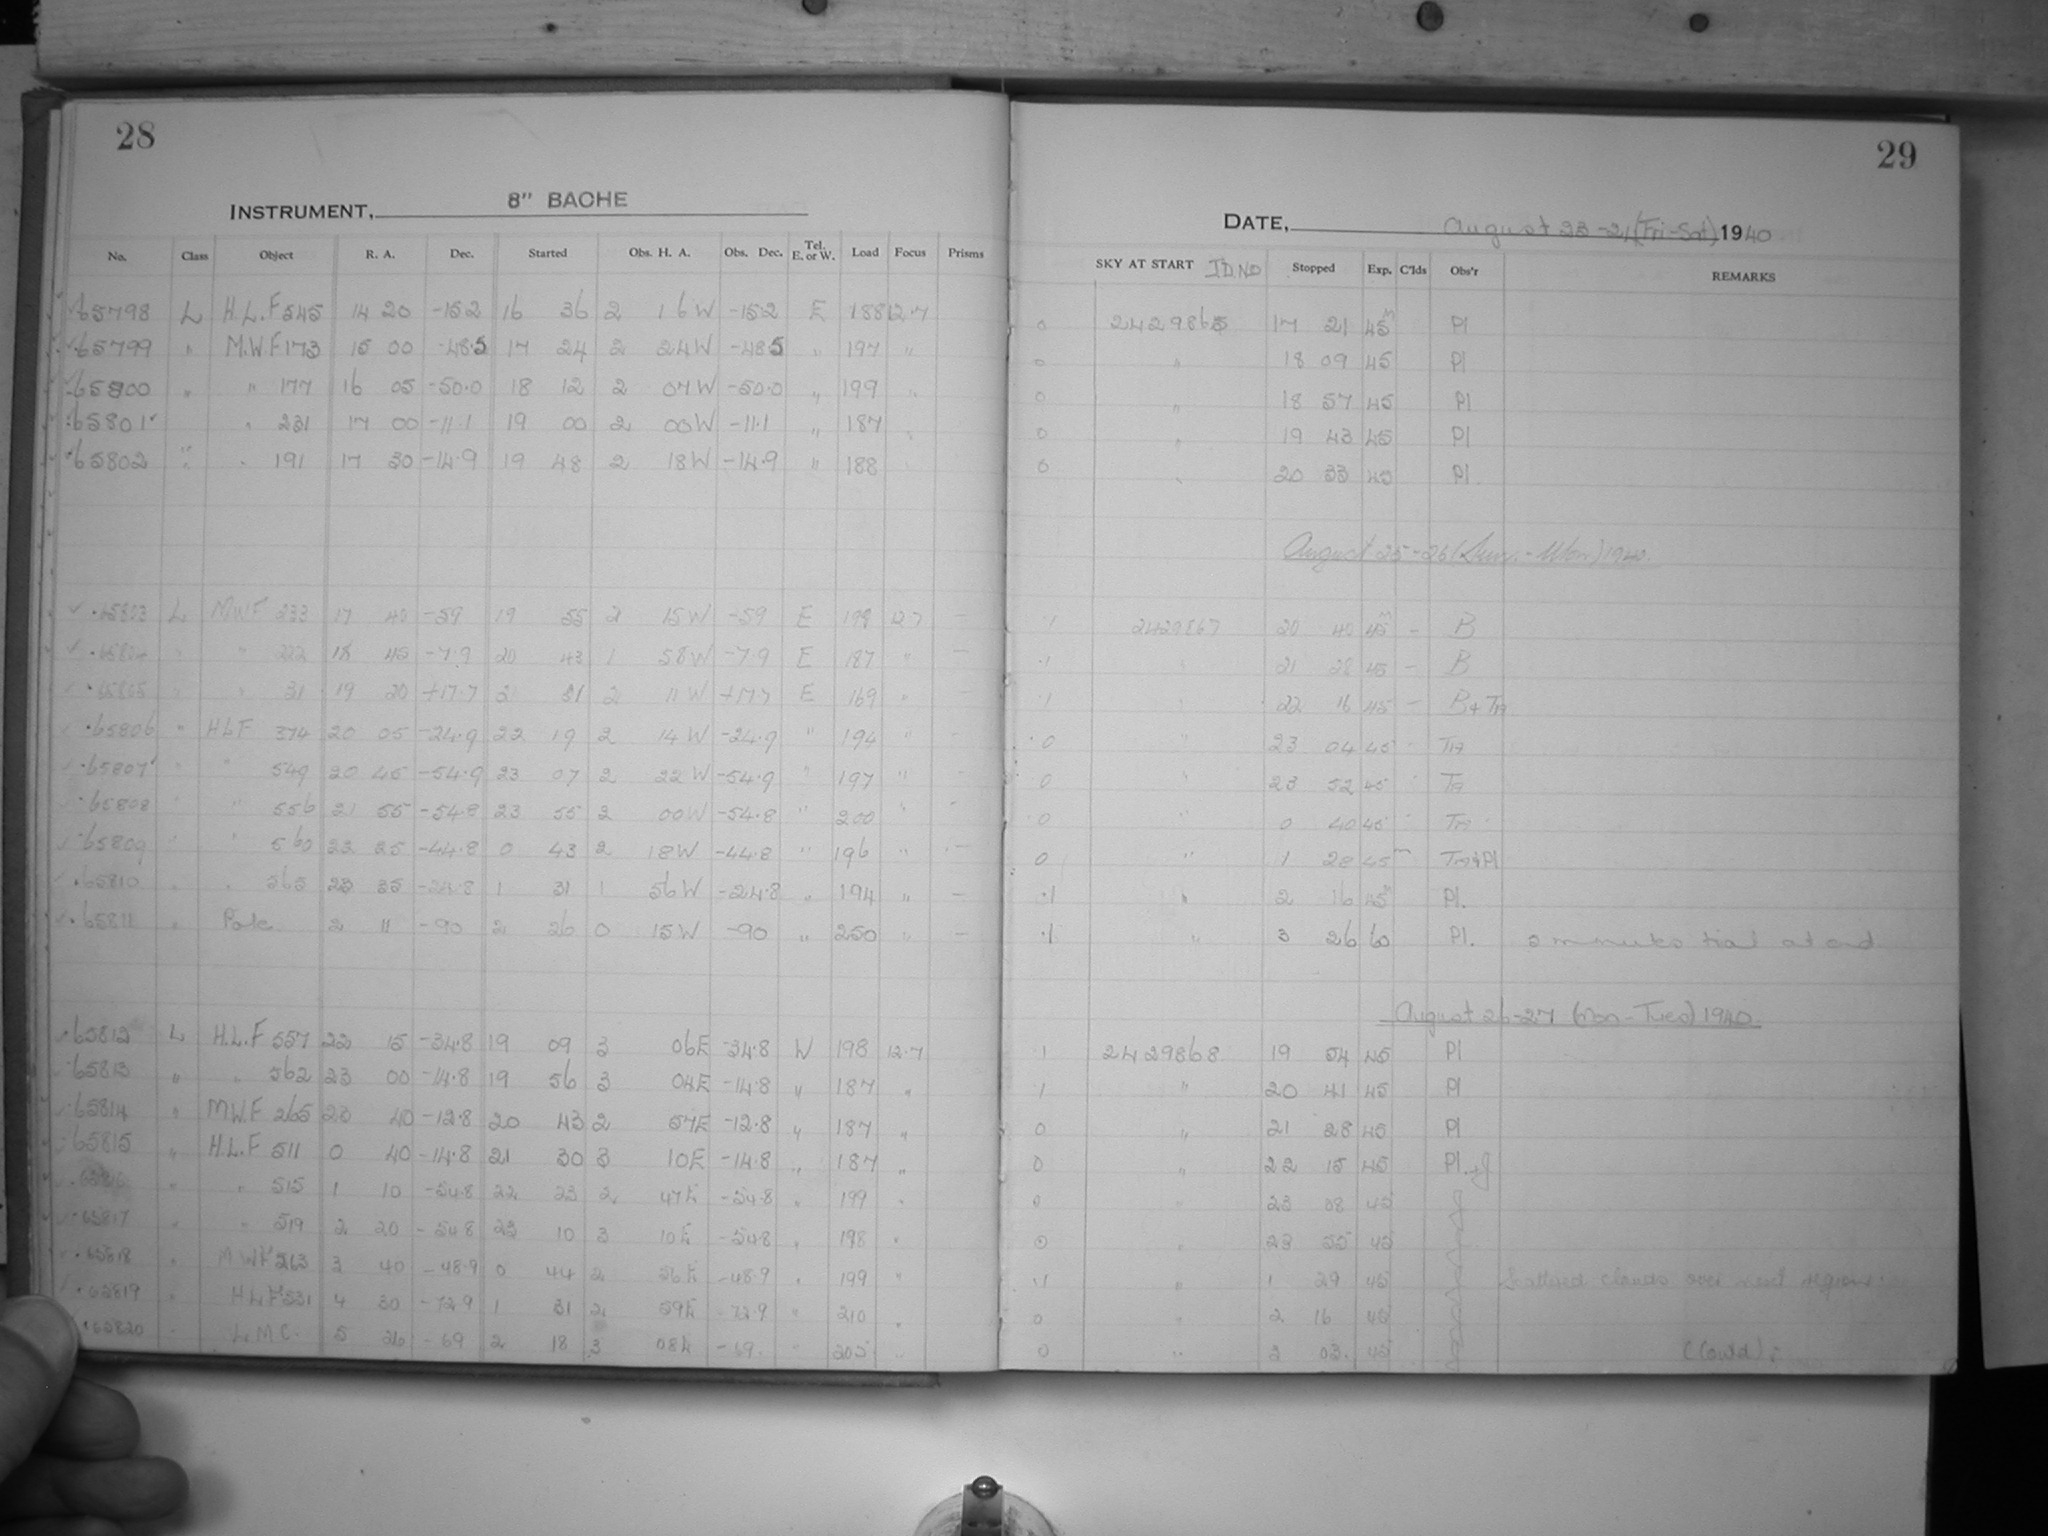 28
INSTRUMENT, 8" BACHE
No. Class Object R. A. Dec. Started Obs. H. A. Obs. Dec. Tel. E. or W. Load Focus Prisms
65798 L H.L.F 545 14 20 -15.2 16 36 2 16W -15.2 E 188 12.7
65799 " M.W.F 173 15 00 -48.5 17 24 2 24W -48.5 " 197 "
65800 " " 177 16 05 -50.0 18 12 2 07W -50.0 " 199 "
65801 " 231 17 00 -11.1 19 00 2 00W -11.1 " 187 "
65802 " " 191 17 30 -14.9 19 48 2 18W -14.9 " 188
65803 L MWF 233 17 40 -59 19 55 2 15W -59 E 199 12.7 -
65804 " " 222 18 45 -7.9 20 43 1 58W -7.9 E 187 " -
65805 " " 31 19 20 +17.7 31 2 11W +17.7 E 169 " -
65806 " HLF 374 20 05 -24.9 22 19 2 14W -24.9 " 194 " -
65807 " " 549 20 45 -54.9 23 07 2 22W -54.9 " 197 " -
65808 " " 556 21 55 -54.8 23 55 2 00W -54.8 " 200 " -
65809 " " 560 22 25 -44.8 0 43 2 18W -44.8 " 196 " -
65810 " " 565 23 35 -24.8 1 31 1 56W -24.8 " 194 " -
65811 " Pole 2 11 -90 2 26 0 15W -90 " 250 " -
65812 L H.L.F 557 22 15 -34.8 19 09 3 06E -34.8 W 198 12.7
65813 " " 562 23 00 -14.8 19 56 3 04E -14.8 " 187 "
65814 " M.W.F 265 23 40 -12.8 20 43 2 57E -12.8 " 187 "
65815 " H.L.F 511 0 40 -14.8 21 30 3 10E -14.8 " 187 "
65816 " " 515 1 10 -54.8 22 23 2 47E -54.8 " 199 "
65817 " " 519 2 20 -54.8 23 10 3 10E -54.8 " 198 "
65818 " MWF 263 3 40 -48.9 0 44 2 56E -48.9 " 199 "
65819 " HLF 531 4 30 -72.9 1 31 2 59E -72.9 " 210 "
65820 " L.M.C. 5 26 -69 2 18 3 08E -69. " 205 "
29
DATE, August 23-24 (Fri-Sat) 1940
SKY AT START J.D.NO Stopped Exp. C'lds Obs'r REMARKS
0 2429865 17 21 45m Pl
0 " 18 09 45 Pl
0 " 18 57 45 Pl
0 " 19 43 45 Pl
0 " 20 33 45 Pl
August 25-26 (Sun.-Mon) 1940.
.1 2429867 20 40 45m - B
.1 " 21 28 45 - B
.1 " 22 16 45 - B+TH
0 " 23 04 45 TH
0 " 23 52 45 TH
0 " 0 40 45 TH
0 " 1 28 45m TH+Pl
.1 " 2 16 45m Pl.
.1 " 3 26 60 Pl. minutes trial at end
August 26-27 (Mon-Tues) 1940
1 2429868 19 54 45 Pl
1 " 20 41 45 Pl
0 " 21 28 45 Pl
0 " 22 15 45 Pl.+J
0 " 23 08 45
0 " 23 55 45
.1 " 1 29 45 Scattered clouds over next region
0 " 2 16 45
0 " 3 03 45 (Could)